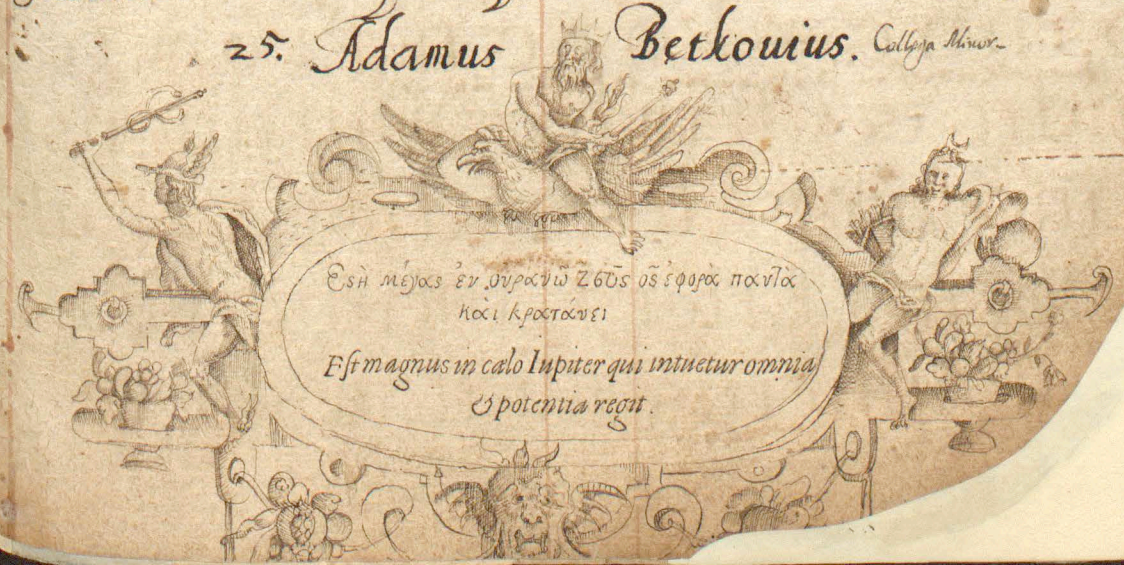 25. Adamus Betkouius. Collega Minor
Εςὴ μέγας ἐν ουρανῶ Ζεῦς ὅς ἐφορᾷ παντα
κὰι κρατύνει
Est magnus in cælo Iupiter qui intuetur omnia
& potentia regit.